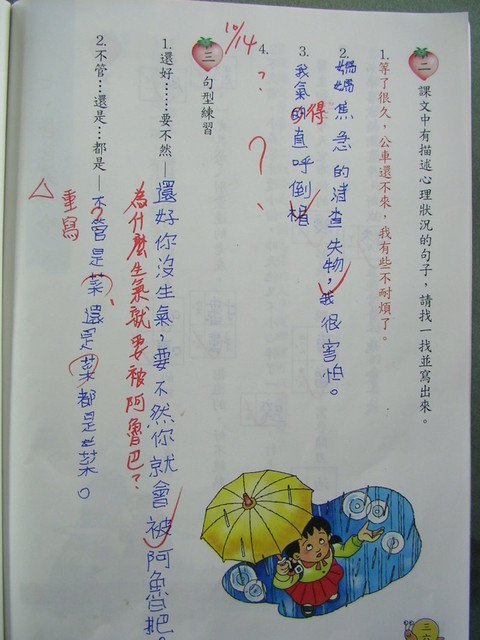 二 課文中有描述心理狀況的句子，請找一找並寫出來。
1.等了很久，公車還不來，我有些不耐煩了。
2.媽媽焦急的清查失物，我很害怕。
3.我氣的直呼倒楣
得
4.？ ？
10/14
三 句型練習
1.還好……要不然—還好你沒生氣，要不然你就會被阿魯巴。
為什麼生氣就要被阿魯巴？
2.不管…還是…都是—不管是菜還是菜都是菜。
？
△重寫
三六